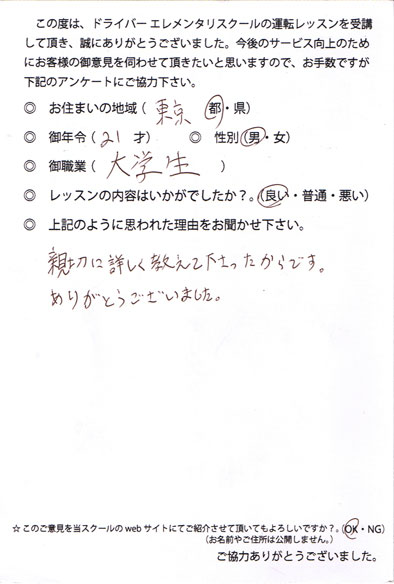 この度は、ドライバー エレメンタリスクールの運転レッスンを受講
して頂き、誠にありがとうございました。今後のサービス向上のため
にお客様の御意見を伺わせて頂きたいと思いますので、お手数ですが
下記のアンケートにご協力下さい。
◎ お住まいの地域（ 東京 都・県）
◎ 御年令（ 21 才） ◎ 性別（男・女）
◎ 御職業（ 大学生 ）
◎ レッスンの内容はいかがでしたか？。（良い・普通・悪い）
◎ 上記のように思われた理由をお聞かせ下さい。
親切に詳しく教えて下さったからです。
ありがとうございました。
☆このご意見を当スクールの web サイトにてご紹介させて頂いてもよろしいですか？。（OK・NG）
（お名前やご住所は公開しません。）
ご協力ありがとうございました。